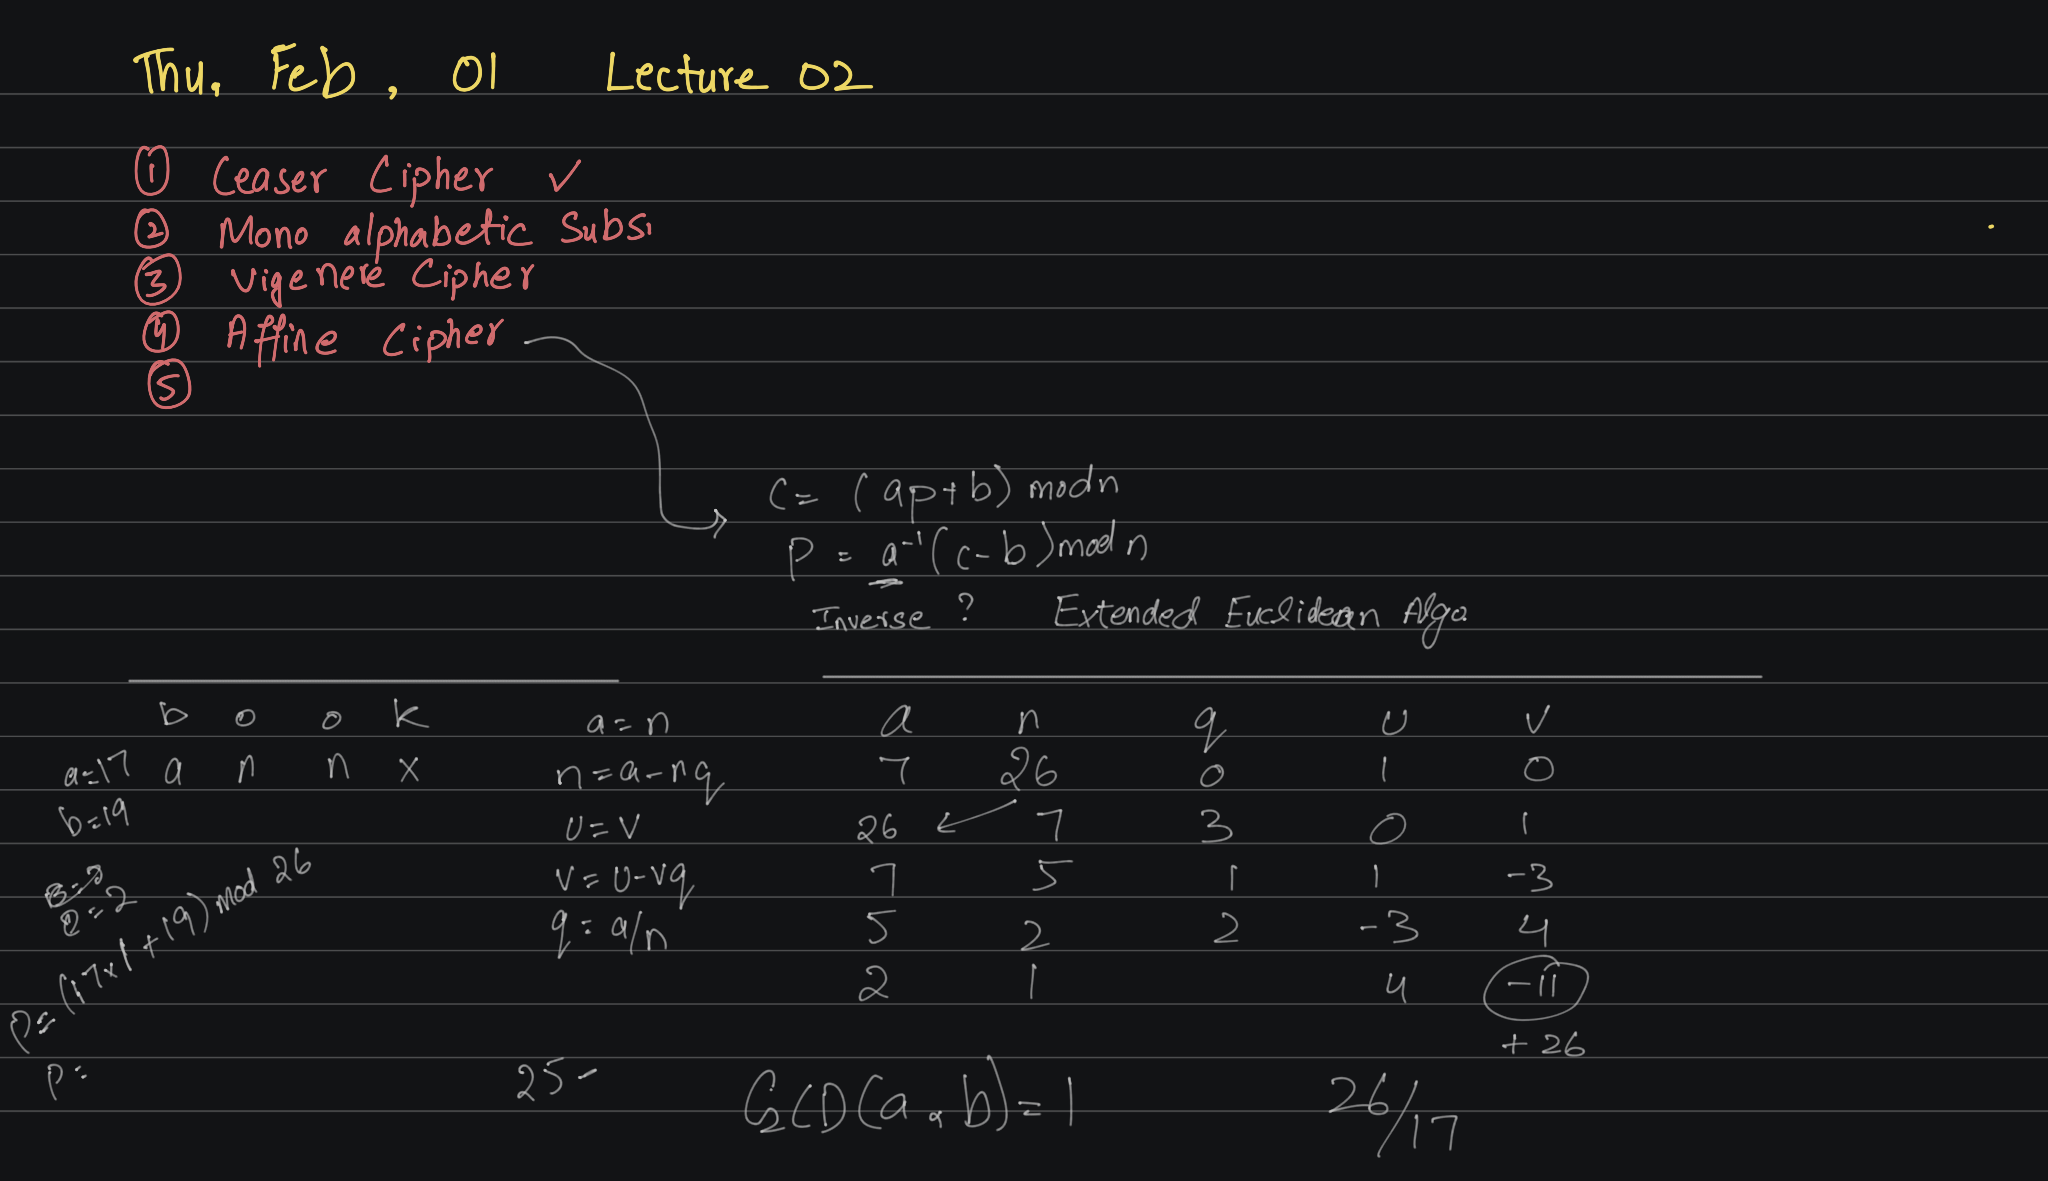 Thu. Feb, 01 Lecture 02
① Ceaser Cipher ✓
② Mono alphabetic Subs.
③ Vigenere Cipher
④ Affine Cipher
⑤
C = (ap+b) mod n
P = a⁻¹(c-b) mod n
Inverse ? Extended Euclidean Algo.
b o o k
a=17 a n n x
b=19
2=2
P= (17x1+19) mod 26
P=
a=n
n=a-nq
u=v
v=u-vq
q=a/n
25-
a n q u v
7 26 0 1 0
26 7 3 0 1
7 5 1 1 -3
5 2 2 -3 4
2 1 4 -11
+26
GCD(a,b)=1
26/17